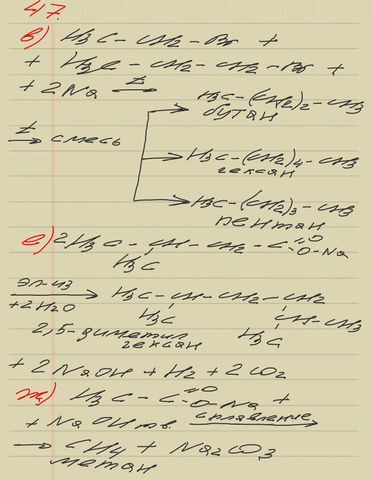 47.
в) H₃C – CH₂ – Br +
+ H₃C – CH₂ – CH₂ – Br +
+ 2Na t→
H₃C–(CH₂)₂–CH₃
бутан
t→ смесь
H₃C–(CH₂)₄–CH₃
гексан
H₃C–(CH₂)₃–CH₃
пентан
е) 2H₃C – CH – CH₂ – C=O
O–Na
H₃C
эл-из
+2H₂O
H₃C – CH – CH₂ – CH₂
H₃C
CH–CH₃
2,5-диметил
H₃C
гексан
+ 2NaOH + H₂ + 2CO₂
ж) H₃C – C=O
O–Na +
+ NaOH тв. сплавление→
→ CH₄ + Na₂CO₃
метан